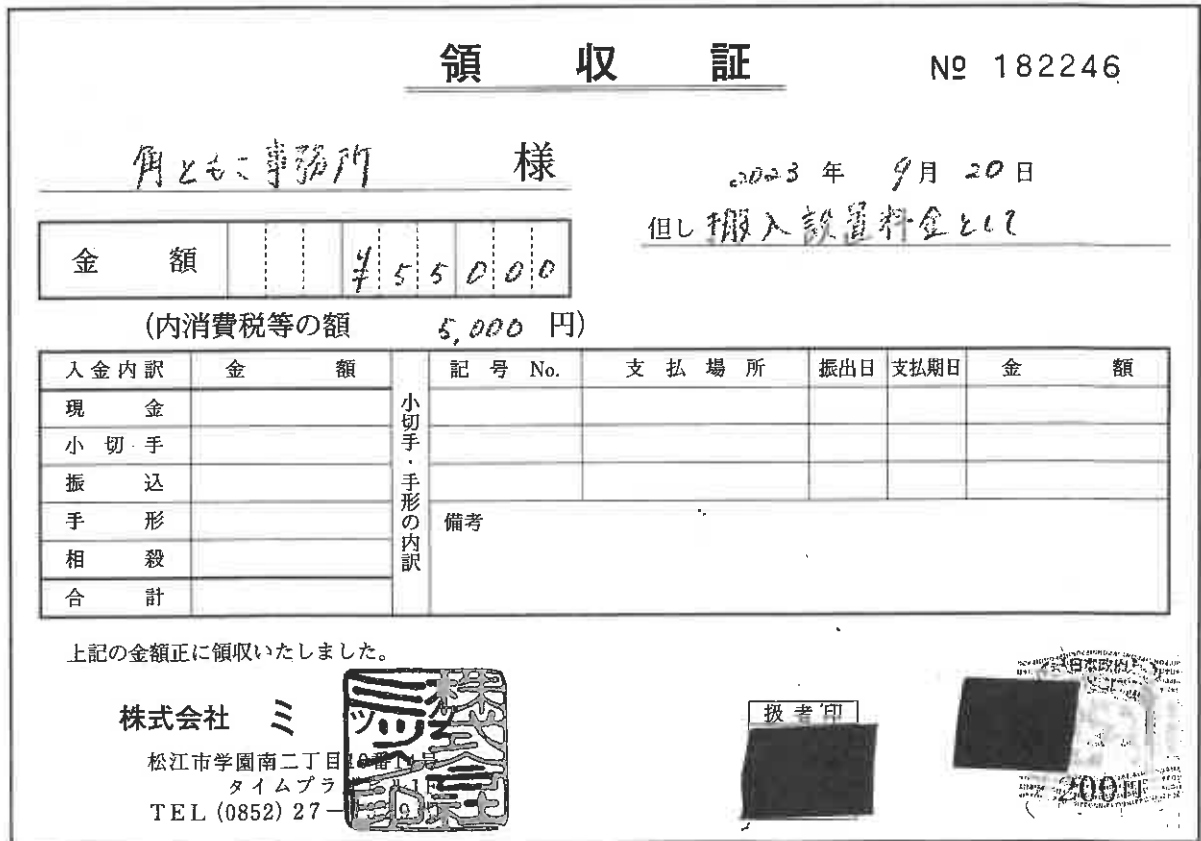 領収証
№ 182246
角ともこ事務所 様
2023 年 9月 20日
但し 搬入設置料金として
金額 ¥55000
(内消費税等の額 5,000 円)
入金内訳 金額
現金
小切手
振込
手形
相殺
合計
小切手・手形の内訳
記号No. 支払場所 振出日 支払期日 金額
備考
上記の金額正に領収いたしました。
株式会社 ミ
松江市学園南二丁目
タイムプラ
TEL (0852) 27-
扱者印
日本政府
200円